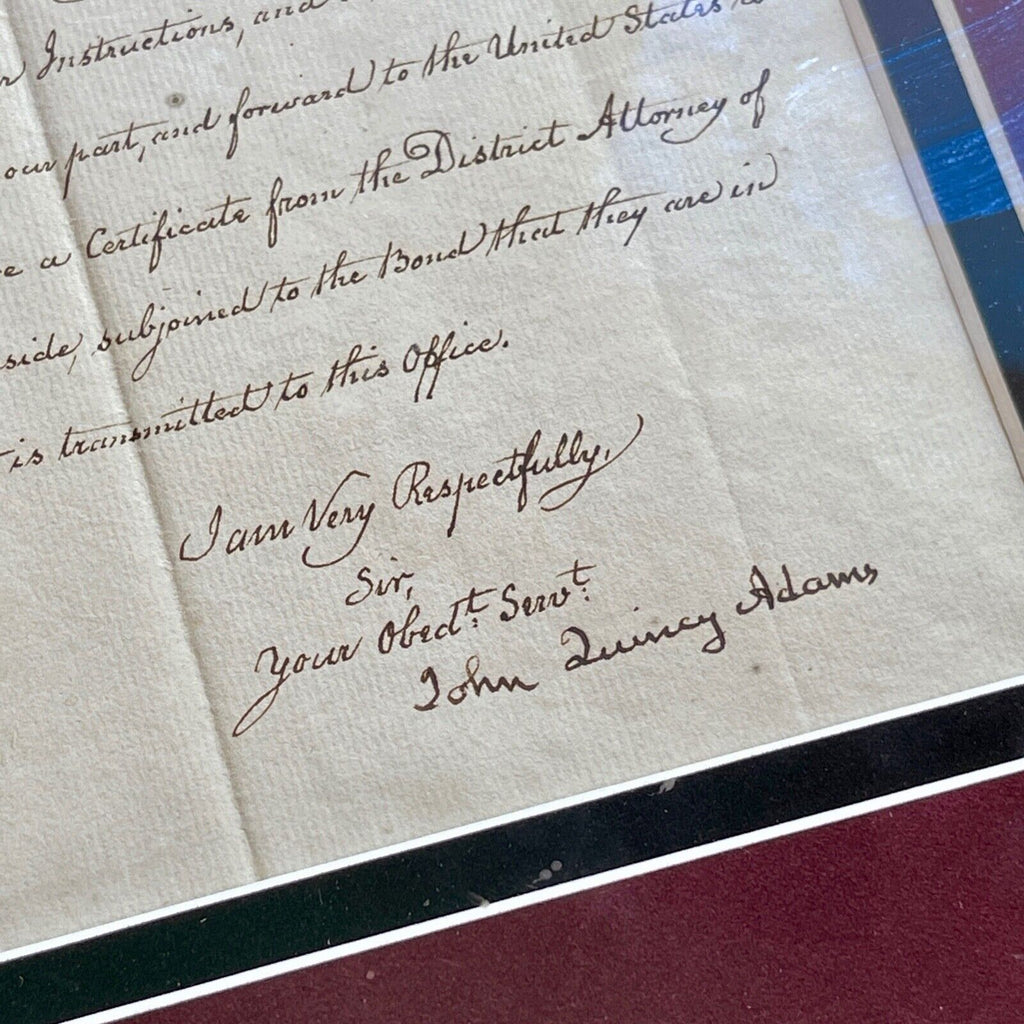 Instructions, and
our part, and forward to the United States
a Certificate from the District Attorney of
side, subjoined to the Bond that they are in
is transmitted to this Office.
I am Very Respectfully,
Sir,
Your Obedt. Servt.
John Quincy Adams